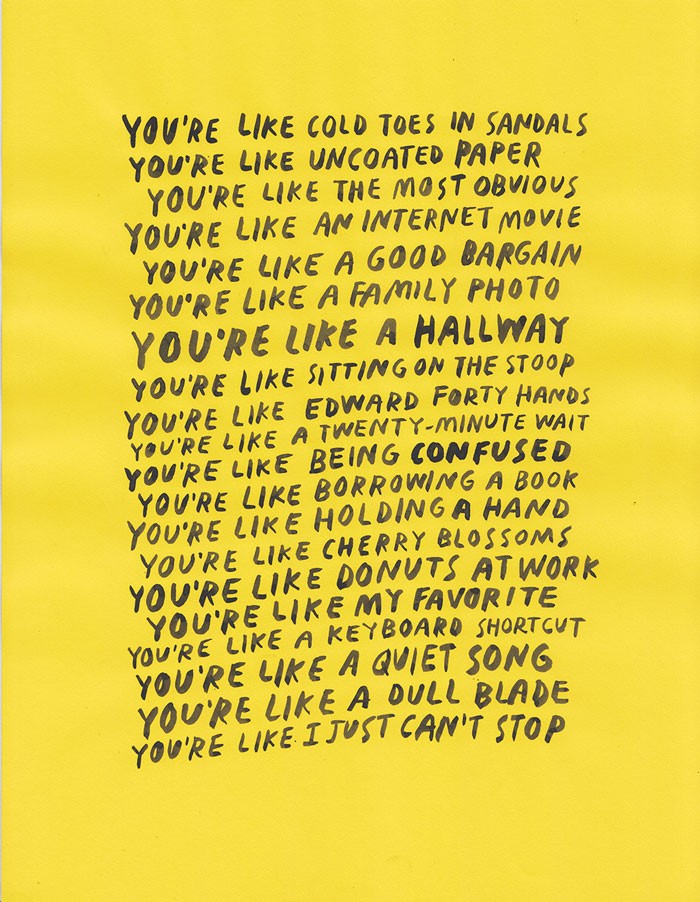 YOU'RE LIKE COLD TOES IN SANDALS
YOU'RE LIKE UNCOATED PAPER
YOU'RE LIKE THE MOST OBVIOUS
YOU'RE LIKE AN INTERNET MOVIE
YOU'RE LIKE A GOOD BARGAIN
YOU'RE LIKE A FAMILY PHOTO
YOU'RE LIKE A HALLWAY
YOU'RE LIKE SITTING ON THE STOOP
YOU'RE LIKE EDWARD FORTY HANDS
YOU'RE LIKE A TWENTY-MINUTE WAIT
YOU'RE LIKE BEING CONFUSED
YOU'RE LIKE BORROWING A BOOK
YOU'RE LIKE HOLDING A HAND
YOU'RE LIKE CHERRY BLOSSOMS
YOU'RE LIKE DONUTS AT WORK
YOU'RE LIKE MY FAVORITE
YOU'RE LIKE A KEYBOARD SHORTCUT
YOU'RE LIKE A QUIET SONG
YOU'RE LIKE A DULL BLADE
YOU'RE LIKE I JUST CAN'T STOP